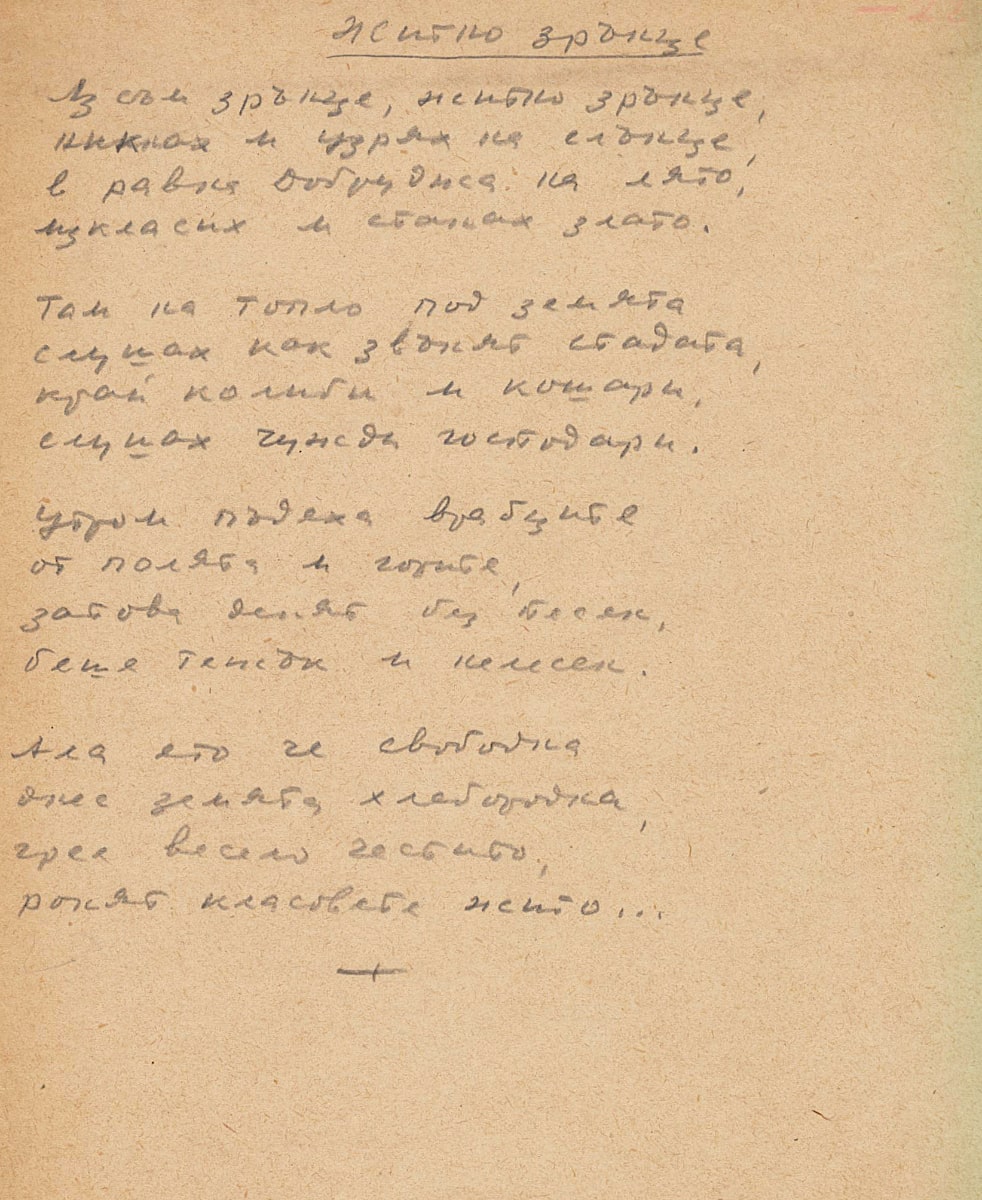 Житно зрънце
Аз съм зрънце, житно зрънце,
никнах и узрях на слънце,
в равна Добруджа на лято,
изкласих и станах злато.
Там на топло под земята
слушах как звънят стадата,
край колиби и кошари,
слушах чужди господари.
Утром пъдеха врабците
от полята и горите,
затова денят без песен,
беше тежък и нелесен.
Ала ето че свободна
днес земята хлебородна,
грее весело честито,
ронят класовете жито...